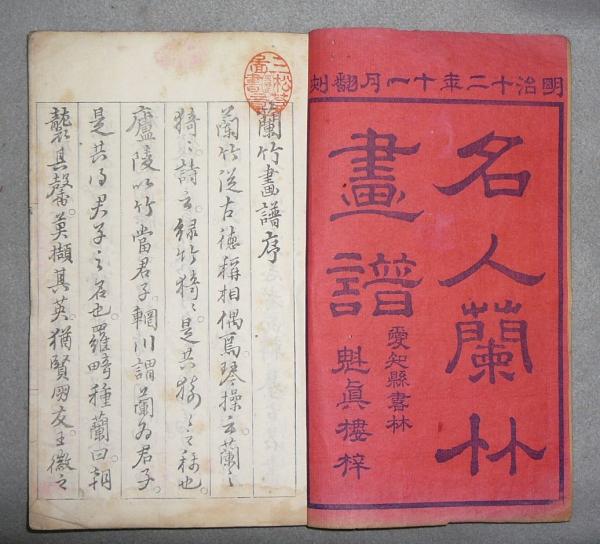 明治十二年十一月翻刻
名人蘭竹
畫譜
愛知縣書林
魁眞樓梓
蘭竹畫譜序
蘭竹從古德稱相偶焉琴操云蘭之
猗〻詩云緑竹猗〻是其猗〻之稱也
廬陵以竹當君子輞川謂蘭為君子
是共得君子之名也羅畸種蘭曰朝
襲其馨莫擷其英猶賢朋友王徽之